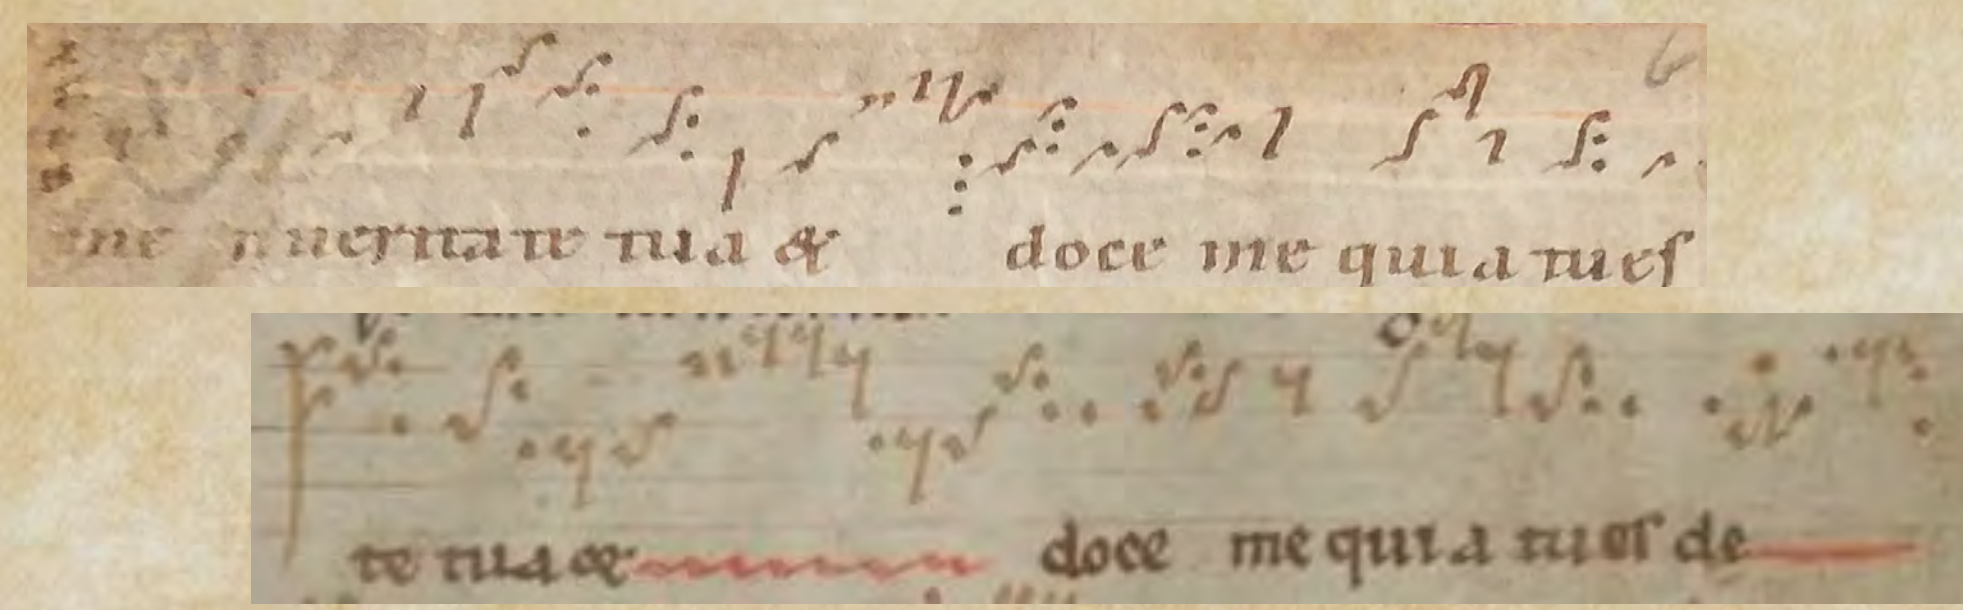 me in ueritate tua & doce me quia tu es
te tua & doce me quia tu es de